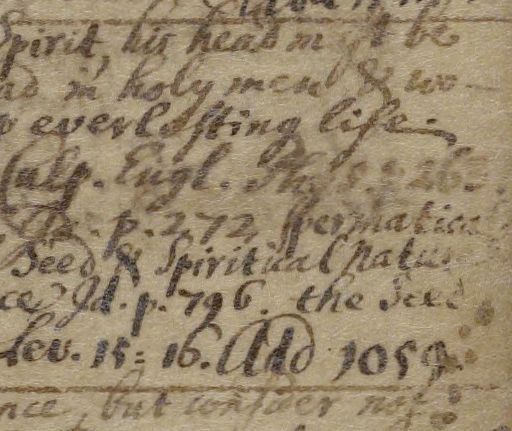 Spirit, his head m be
in holy men & wo-
everlasting life.
Culp. Engl. Phys.
p. 272 spermatica
Seed & Spiritual natu
ce Id. p. 796. the Seed
Lev. 15: 16. Add 1059.
nce, but consider not